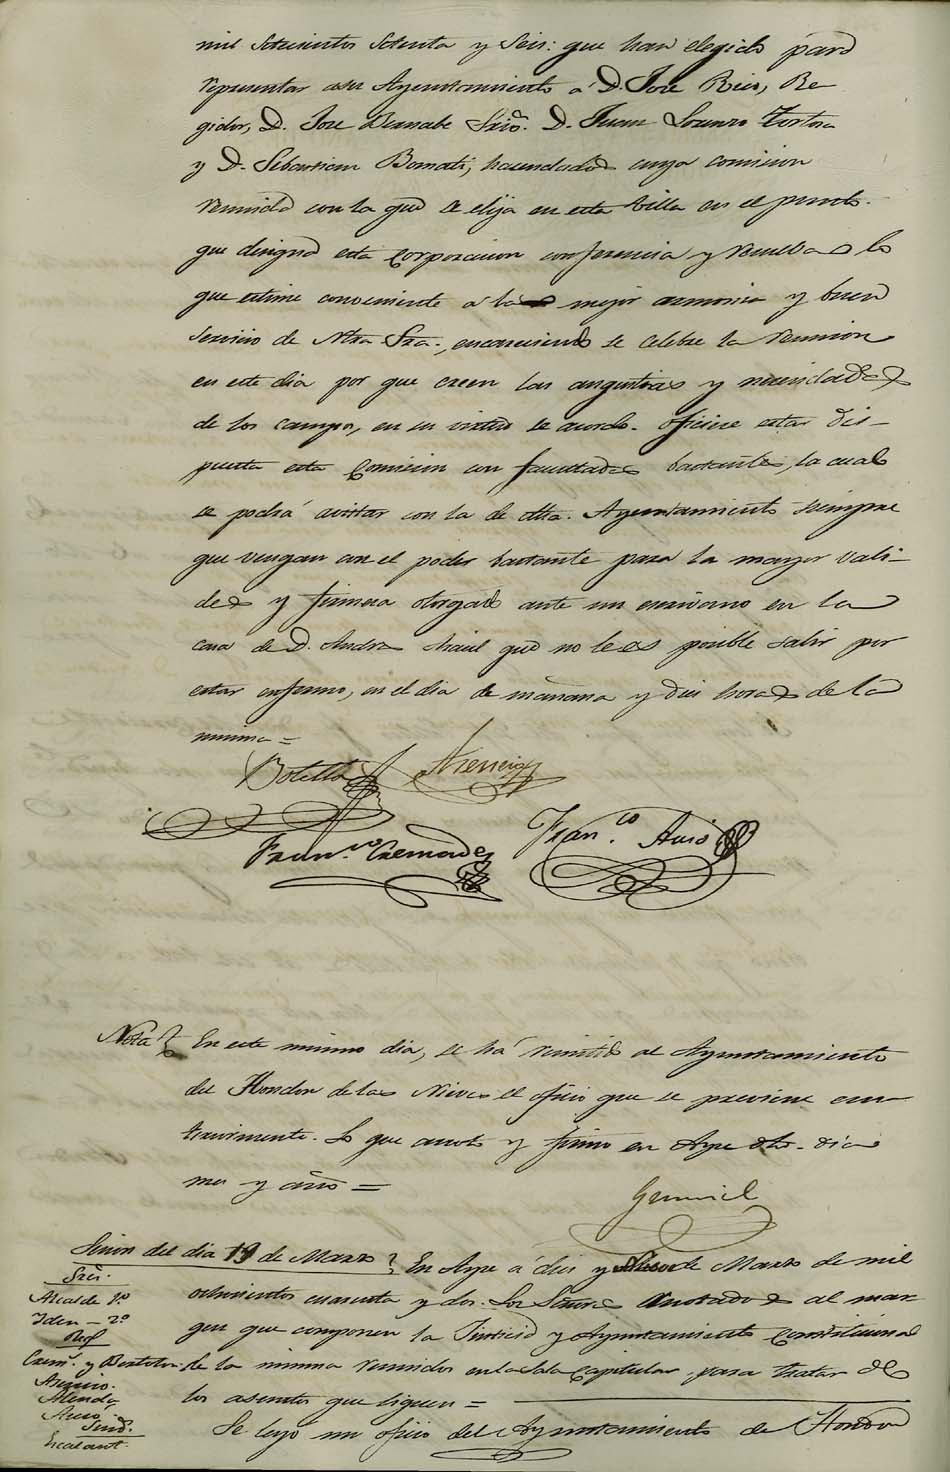 mil setecientos setenta y seis: que han elegido para
representar a su Ayuntamiento á D. José Rico, Re
gidor, D. Jose Bernabe Srio. D. Juan Lorenzo Tortosa
y D. Sebastian Bomati, hacendados cuya comision
reunida con la que se elija en esta Villa en el punto
que designe esta corporacion conferencia y resuelva lo
que estime conveniente á la mejor armonia y buen
servicio de Ntra. Sra., encareciendo se celebre la reunion
en este dia por que crecen las angustias y necesidades
de los campos, en su virtud se acordo. Oficiese estar dis-
puesta esta Comision con facultades bastantes, la cual
se podrá avistar con la de dho. Ayuntamiento siempre
que vengan con el poder bastante para la mayor vali-
dez y firmeza otorgado ante un escribano en la
casa de D. Andres que no le es posible salir por
estar enfermo, en el dia de mañana y diez horas de la
misma =
Botella
Fran.co Cremades Fran.co
Nota En este mismo dia, se há remitido al Ayuntamiento
del Hondon de las Nieves el oficio que se previene an-
teriormente. Lo que anoto y firmo en Aspe dho. dia
mes y año =
Sesion del dia 19 de Marzo En Aspe á diez y de Marzo de mil
Sres.
ochocientos cuarenta y dos. Los Señores anotados al mar-
Alcalde 1º
Iden - 2º
gen que componen la Justicia y Ayuntamiento Constitucional
Crem.s y Botella
de la misma reunidos en la Sala Capitular, para tratar de
los asuntos que siguen =
Sind.
Escalant.
Se leyó un oficio del Ayuntamiento de Hondon